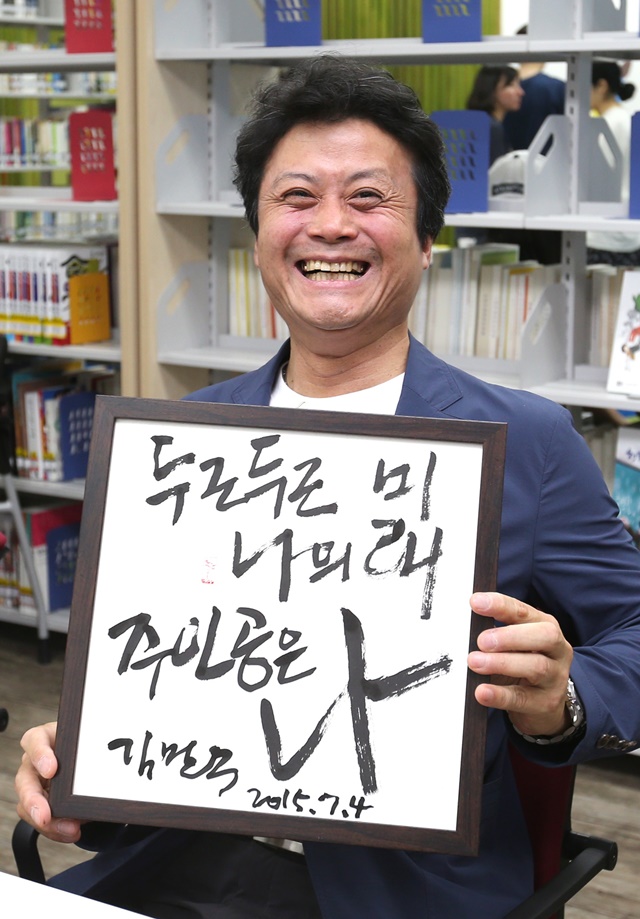 두근두근 미
나의 래
주인공은 나
2015.7.4